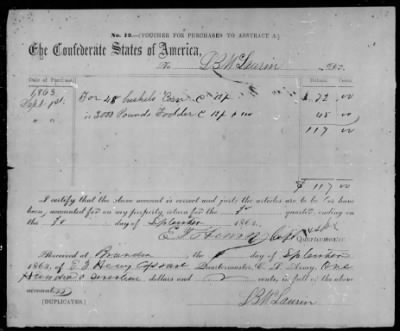 No. 12.—(VOUCHER FOR PURCHASES TO ABSTRACT A.)
The Confederate States of America,
To D B McLaurin Dr.
Date of Purchase. Dollars. Cents.
1863
Sept 1st For 48 bushels Corn $ 72 00
" " 3000 Pounds Fodder 45 00
117 00
$ 117 00
I certify that the above account is correct and just; the articles are to be or have
been accounted for on my property return for the 3d quarter, ending on
the 30 day of September 1863.
E F Henry Capt
Quartermaster.
Received at Brandon the day of September
1863, of E F Henry Capt Quartermaster C. S. Army, One
Hundred & seventeen dollars and cents, in full of the above
account.
(DUPLICATES.) D B McLaurin